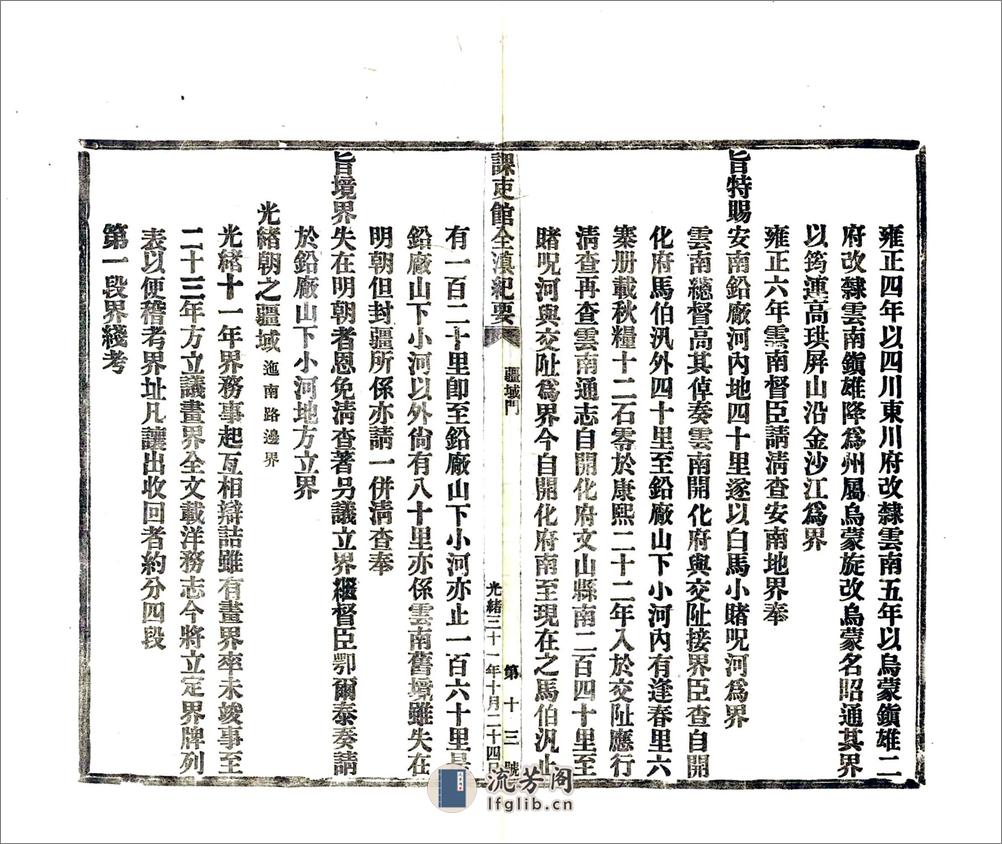 雍正四年以四川東川府改隸雲南五年以烏蒙鎮雄二
府改隸雲南鎮雄降爲州屬烏蒙旋改烏蒙名昭通其界
以筠連高珙屏山沿金沙江爲界
雍正六年雲南督臣請清查安南地界奉
旨特賜安南鉛廠河內地四十里遂以白馬小賭呪河爲界
雲南總督高其倬奏雲南開化府與交阯接界臣查自開
化府馬伯汛外四十里至鉛廠山下小河內有逢春里六
寨册載秋糧十二石零於康熙二十二年入於交阯應行
淸查再查雲南通志自開化府文山縣南二百四十里至
賭呪河與交阯爲界今自開化府南至現在之馬伯汛止
課吏館全滇紀要
疆域門
第十三號
光緒三十一年十月二十四日
有一百二十里卽至鉛廠山下小河亦止一百六十里是
鉛廠山下小河以外尙有八十里亦係雲南舊境雖失在
明朝但封疆所係亦請一併淸查奉
旨境界失在明朝者恩免淸查著另議立界繼督臣鄂爾泰奏請
於鉛廠山下小河地方立界
光緒朝之疆域 迤南路邊界
光緒十一年界務事起互相辯詰雖有畫界率未竣事至
二十三年方立議畫界全文載洋務志今將立定界牌列
表以便稽考界址凡讓出收回者約分四段
第一段界綫考
流芳阁
lfglib.cn